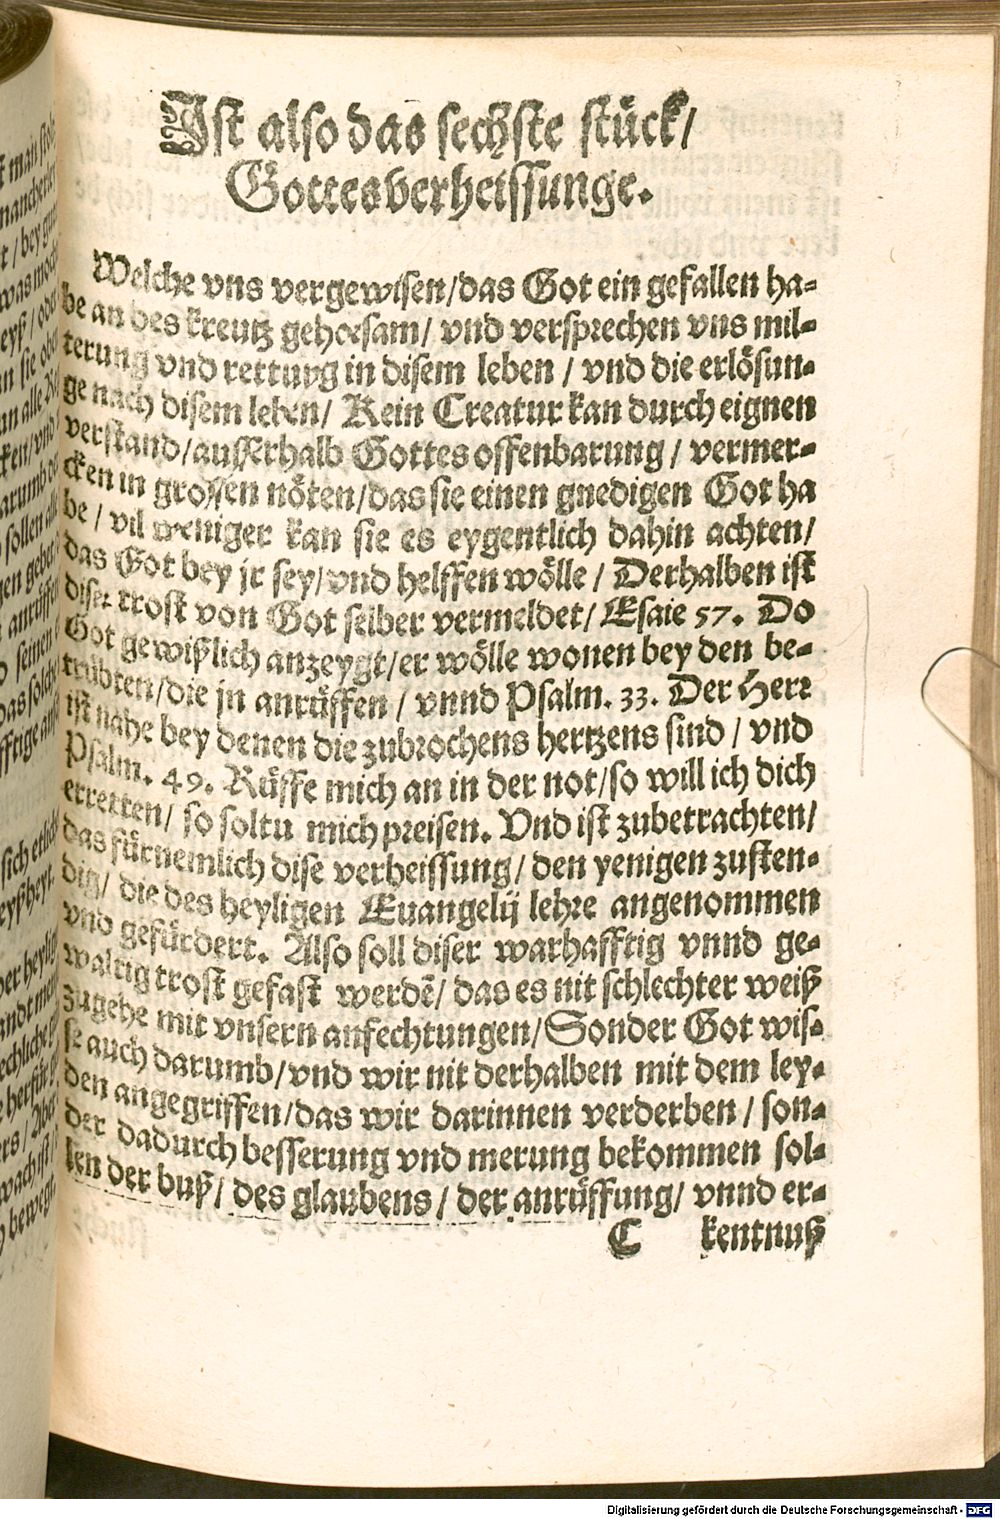 Ist also das sechste stück/
Gottes verheissunge.
Welche vns vergewisen/das Got ein gefallen ha-
be an des kreutz gehorsam/ vnd versprechen vns mil-
terung vnd rettung in disem leben / vnd die erlösun-
ge nach disem leben/ Kein Creatur kan durch eignen
verstand/ausserhalb Gottes offenbarung / vermer-
cken in grossen nöten/das sie einen gnedigen Got ha
be / vil weniger kan sie es eygentlich dahin achten/
das Got bey jr sey/vnd helffen wölle / Derhalben ist
diser trost von Got selber vermeldet/ Esaie 57. Do
Got gewißlich anzeygt/er wölle wonen bey den be-
trübten/die jn anrüffen / vnnd Psalm. 33. Der Herr
ist nahe bey denen die zubrochens hertzens sind / vnd
Psalm. 49. Rüffe mich an in der not/so will ich dich
erretten/ so soltu mich preisen. Vnd ist zubetrachten/
das fürnemlich dise verheissung/ den yenigen zusten-
dig/ die des heyligen Euangelij lehre angenommen
vnd gefürdert. Also soll diser warhafftig vnnd ge-
waltig trost gefast werdē/ das es nit schlechter weiß
zugehe mit vnsern anfechtungen/Sonder Got wis-
se auch darumb/vnd wir nit derhalben mit dem ley-
den angegriffen/das wir darinnen verderben / son-
der dadurch besserung vnd merung bekommen sol-
len der buß/ des glaubens / der anrüffung/ vnnd er-
C kentnuß
Digitalisierung gefördert durch die Deutsche Forschungsgemeinschaft - DFG